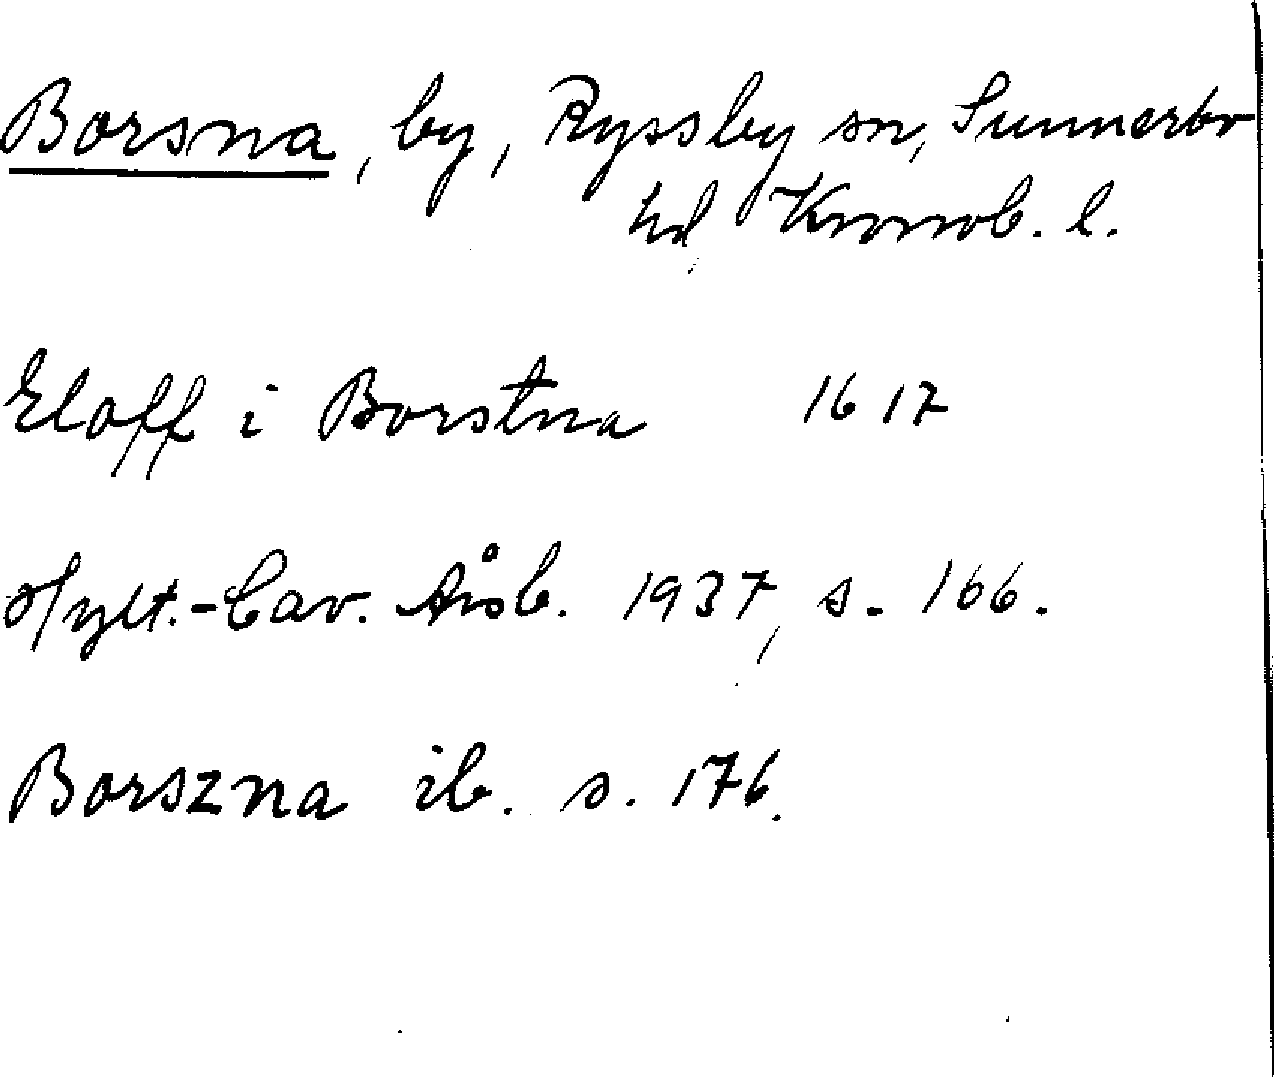 Borsna, by, Ryssby sn, Sunnerbo
hd Kronob. l.
Eloff i Borstna 1617
Hylt.-Cav. Årsb. 1937, s. 166.
Borszna ib. s. 176.